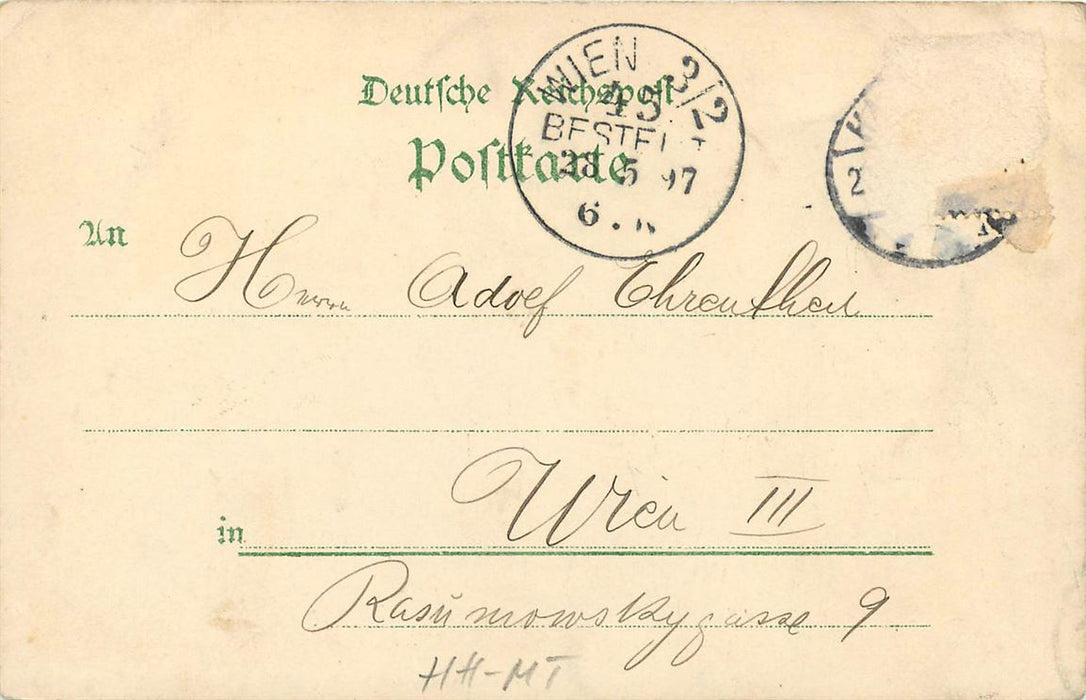 Deutsche Reichspost
Postkarte
WIEN 3/2
45
BESTELLT
28 5 97
6
An Herrn Adolf
Wien III
in
Rasumowskygasse 9
HH-MT